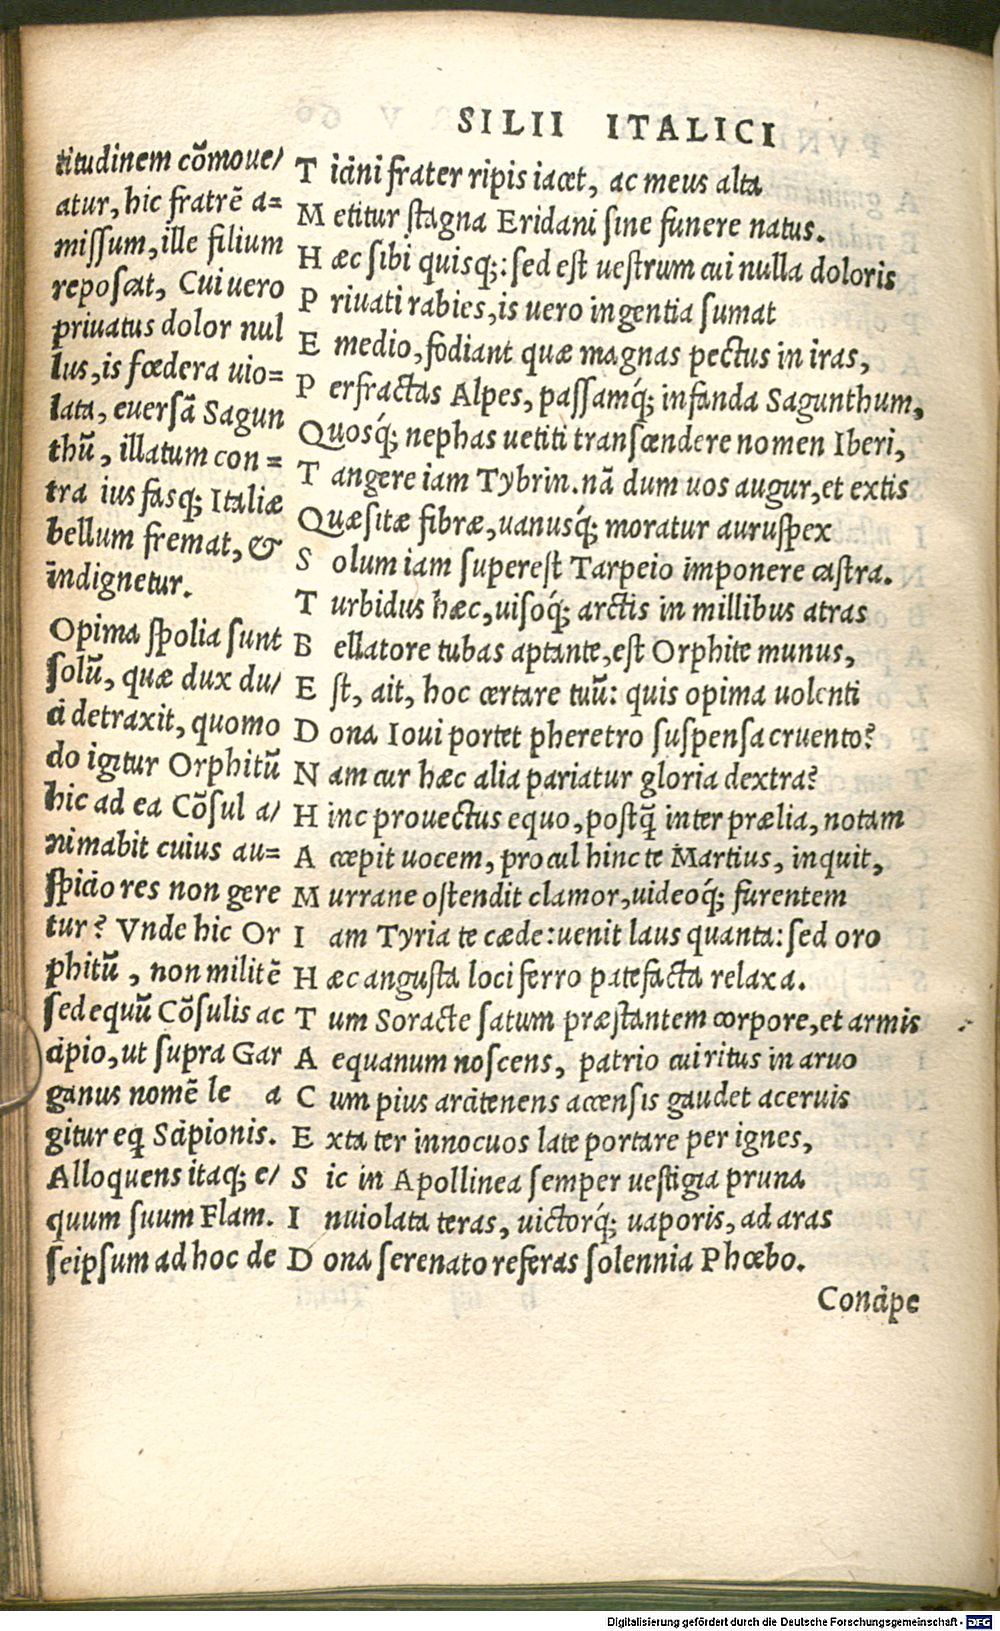 SILII ITALICI
titudinem cõmoue/
atur, hic fratrẽ a=
missum, ille filium
reposcat, Cui uero
priuatus dolor nul
lus, is fœdera uio=
lata, euersã Sagun
thũ, illatum con=
tra ius fasq; Italiæ
bellum fremat, &
indignetur.
Opima spolia sunt
solũ, quæ dux du/
ci detraxit, quomo
do igitur Orphitũ
hic ad ea Cõsul a/
nimabit cuius au=
spicio res non gere
tur? Vnde hic Or
phitũ, non militẽ
sed equũ Cõsulis ac
cipio, ut supra Gar
ganus nomẽ le a
gitur eq̃ Scipionis.
Alloquens itaq; e/
quum suum Flam.
seipsum ad hoc de
T icini frater ripis iacet, ac meus alta
M etitur stagna Eridani sine funere natus.
H æc sibi quisq;: sed est uestrum cui nulla doloris
P riuati rabies, is uero ingentia sumat
E medio, fodiant quæ magnas pectus in iras,
P erfractas Alpes, passamq́; infanda Sagunthum,
Quosq́; nephas uetiti transcendere nomen Iberi,
T angere iam Tybrin. nã dum uos augur, et extis
Quæsitæ fibræ, uanusq́; moratur auruspex
S olum iam superest Tarpeio imponere castra.
T urbidus hæc, uisoq́; arctis in millibus atras
B ellatore tubas aptante, est Orphite munus,
E st, ait, hoc certare tuũ: quis opima uolenti
D ona Ioui portet pheretro suspensa cruento?
N am cur hæc alia pariatur gloria dextra?
H inc prouectus equo, postq̃ inter prælia, notam
A ccepit uocem, procul hinc te Martius, inquit,
M urrane ostendit clamor, uideoq́; furentem
I am Tyria te cæde: uenit laus quanta: sed oro
H æc angusta loci ferro patefacta relaxa.
T um Soracte satum præstantem corpore, et armis
A equanum noscens, patrio cui ritus in aruo
C um pius arcitenens accensis gaudet aceruis
E xta ter innocuos late portare per ignes,
S ic in Apollinea semper uestigia pruna
I nuiolata teras, uictorq́; uaporis, ad aras
D ona serenato referas solennia Phœbo.
Concipe
Digitalisierung gefördert durch die Deutsche Forschungsgemeinschaft - DFG